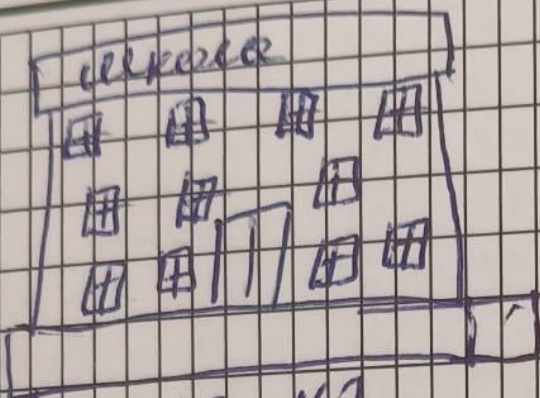 школа